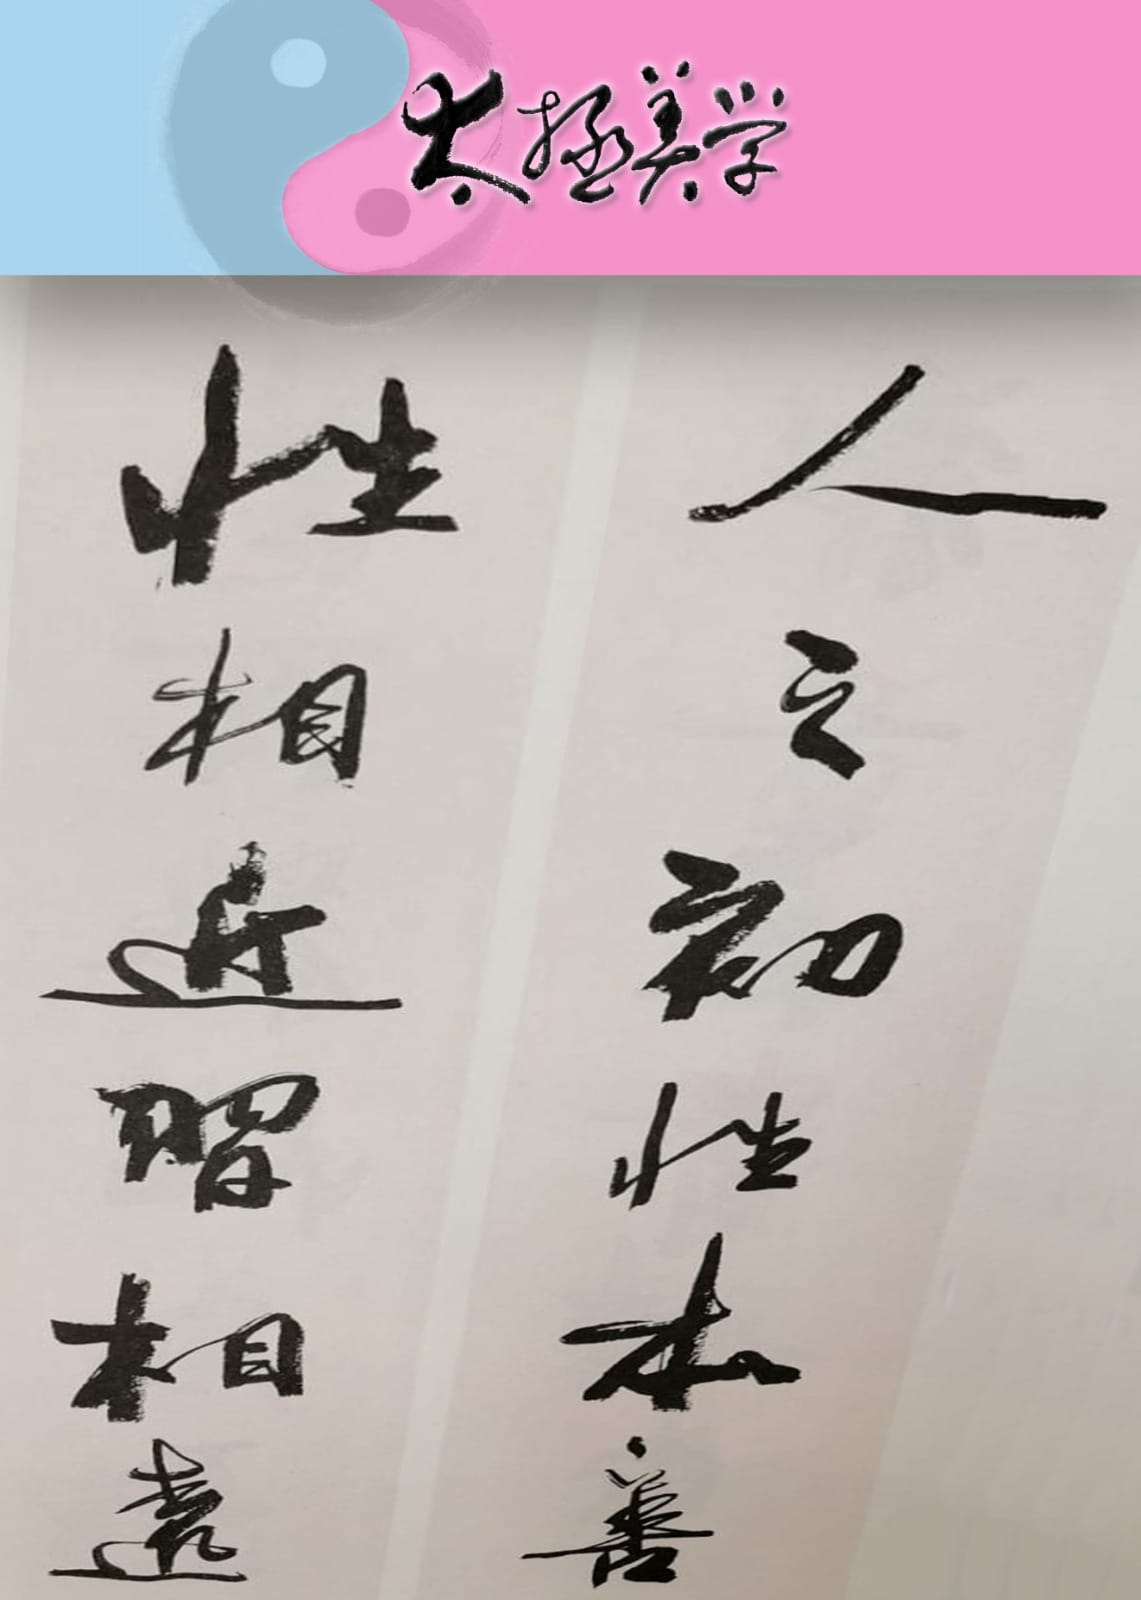 太极美学
人之初性本善
性相近習相遠